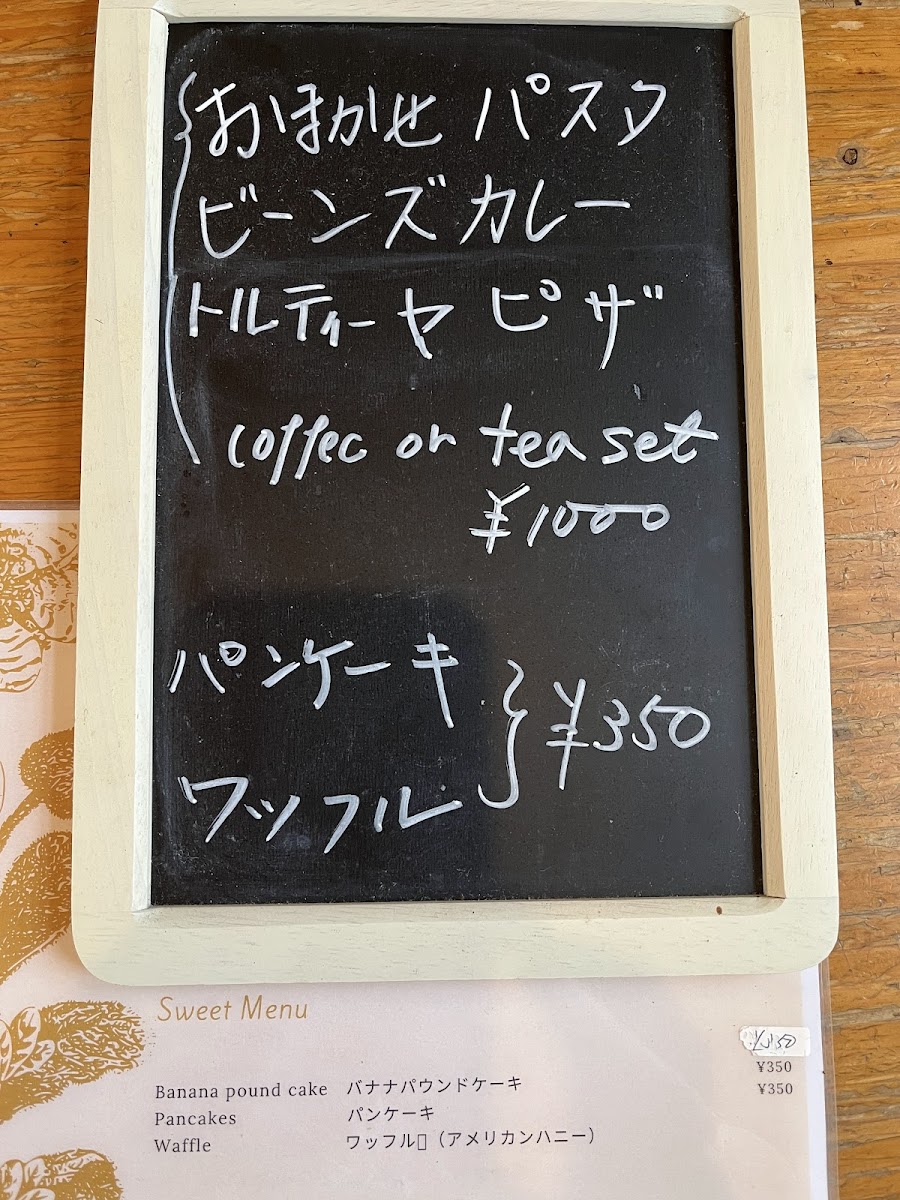 おまかせ パスタ
ビーンズカレー
トルティーヤ ピザ
coffee or tea set
¥1000
パンケーキ
ワッフル
¥350
Sweet Menu
¥350
Banana pound cake バナナパウンドケーキ ¥350
Pancakes パンケーキ
Waffle ワッフル（アメリカンハニー）